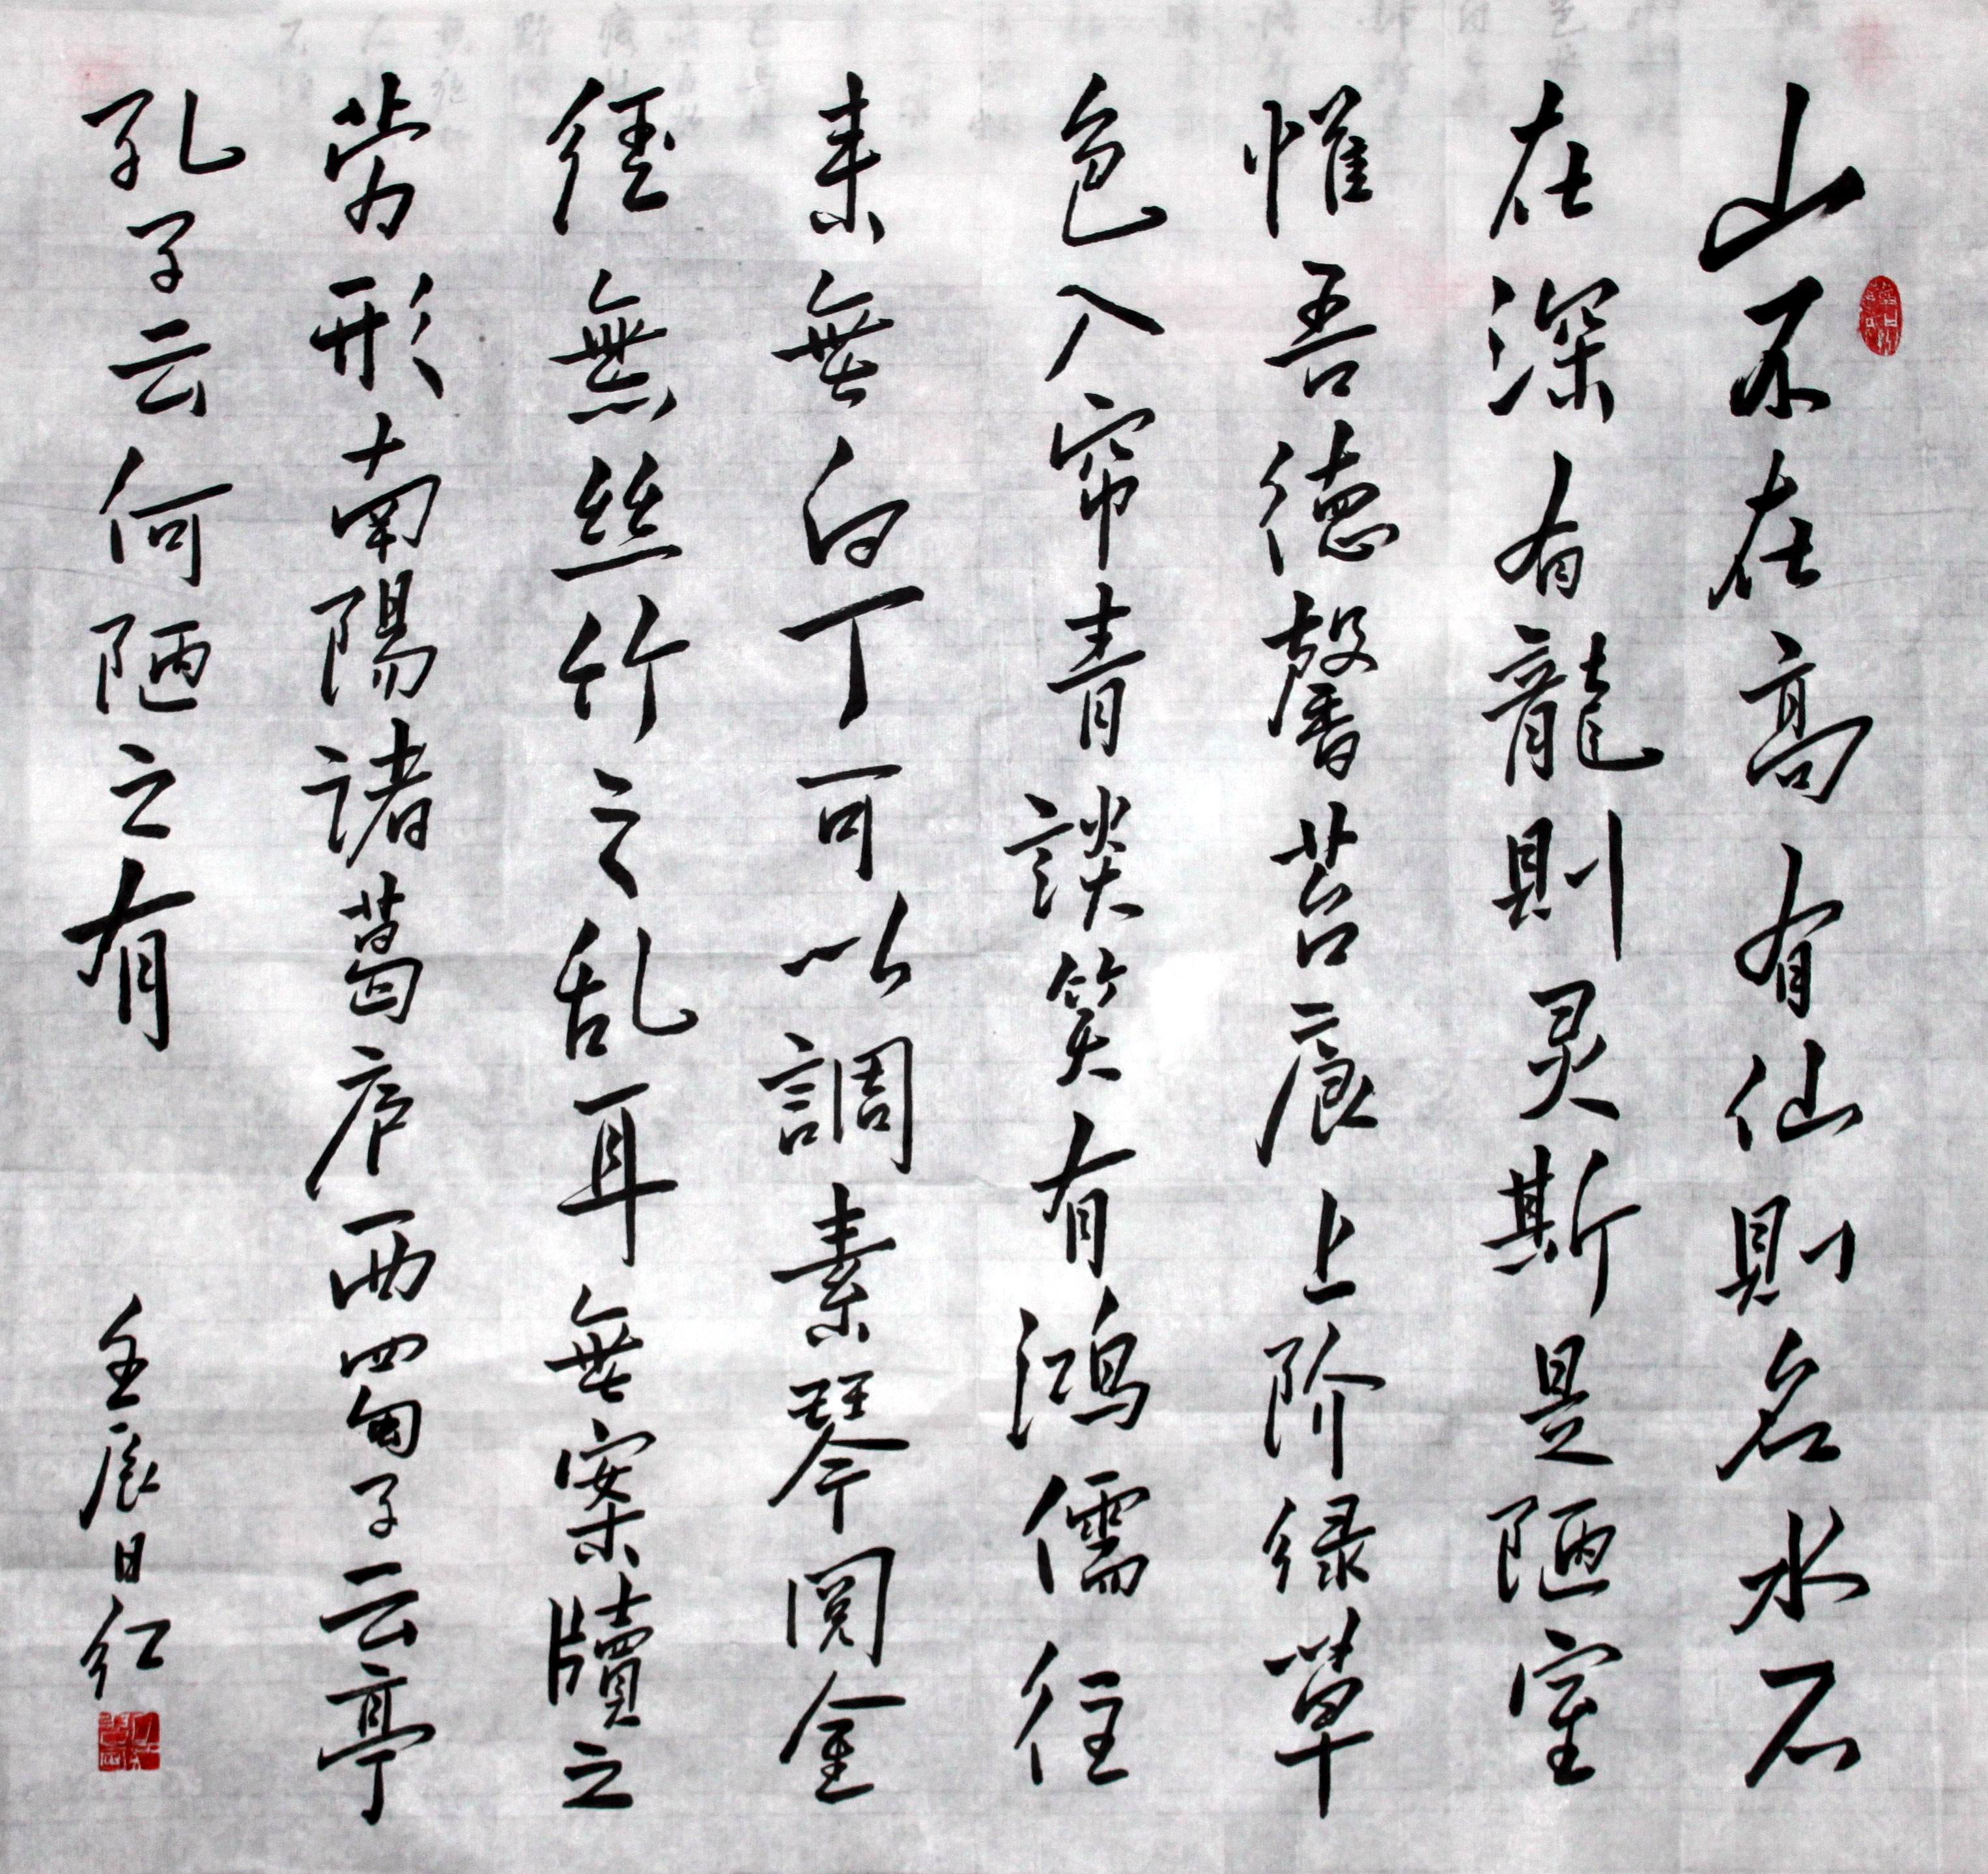 山不在高有仙則名水不
在深有龍則灵斯是陋室
惟吾德馨苔痕上阶绿草
色入帘青談笑有鴻儒往
来無白丁可以調素琴閲金
経無丝竹之乱耳無案牘之
劳形南陽諸葛庐西蜀子云亭
孔子云何陋之有
壬辰日红